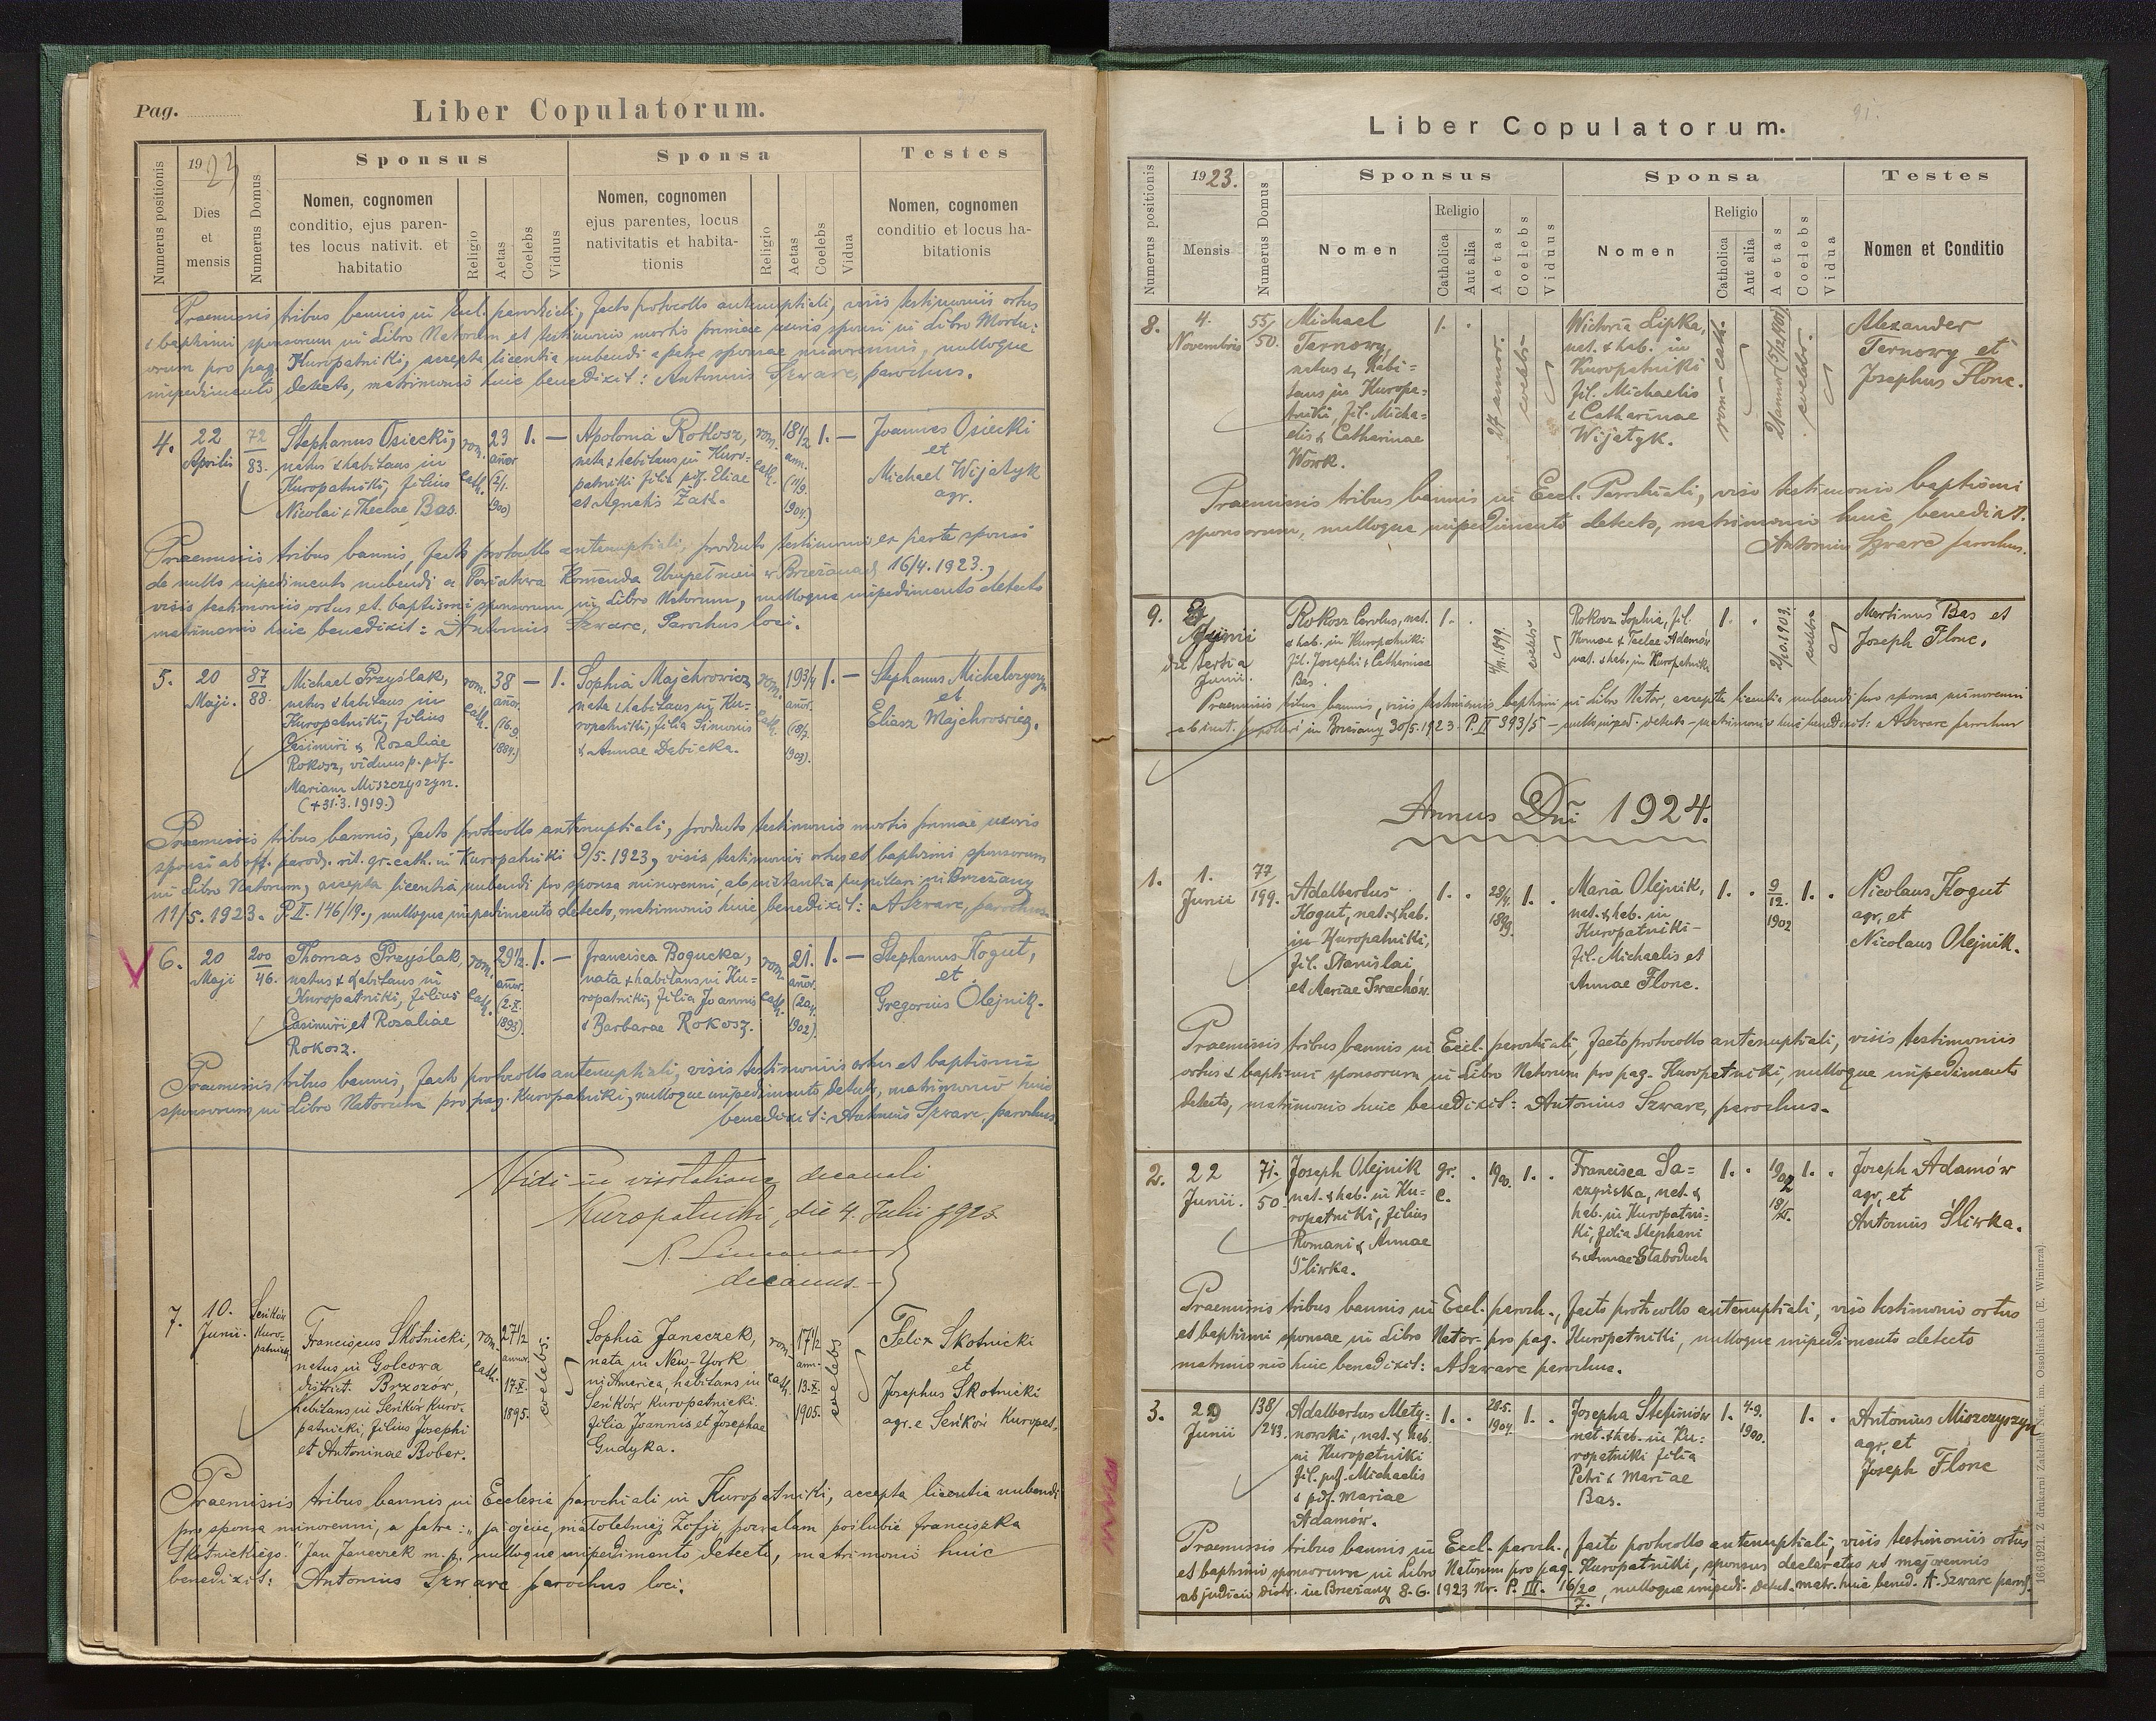 Pag.
Liber Copulatorum.
Numerus positionis
1923
Dies
et
mensis
Numerus Domus
Sponsus
Nomen, cognomen
conditio, ejus paren-
tes locus nativit. et
habitatio
Religio
Aetas
Coelebs
Viduus
Sponsa
Nomen, cognomen
ejus parentes, locus
nativitatis et habita-
tionis
Religio
Aetas
Coelebs
Vidua
Testes
Nomen, cognomen
conditio et locus ha-
bitationis
Praemissis tribus bannis in Eccl. parochiali, facto protocollo antenuptiali, visis testimoniis ortus
& baptismi sponsorum in Libro Natorum et testimonio mortis primae uxoris sponsi in Libro Mortu-
orum pro pag. Kuropatniki, accepta licentia nubendi a patre sponsae minorennis, nulloque
impedimento detecto, matrimonio huic benedixit: Antonius Szwarc, parochus.
4.
22
Aprilis
72
83.
Stephanus Osiecki,
natus & habitans in
Kuropatniki, filius
Nicolai & Theclae Bas.
rom.
cath.
23
annor.
(2/1.
900)
1. —
Apolonia Rokosz,
nata & habitans in Kuro-
patniki filia pdf. Eliae
et Agnetis Żak.
rom.
cath.
18 1/2
ann.
(11/9.
1904.)
1. —
Joannes Osiecki
et
Michael Wijatyk
agr.
Praemissis tribus bannis, facto protocollo antenuptiali, producto testimonio ex parte sponsi
de nullo impedimento nubendi a Powiatowa Komenda Uzupełnień w Brzeżanach 16/4. 1923.,
visis testimoniis ortus et baptismi sponsorum in Libro Natorum, nulloque impedimento detecto
matrimonio huic benedixit: Antonius Szwarc, Parochus loci.
5.
20
Maji.
87
88.
Michael Przyślak,
natus & habitans in
Kuropatniki, filius
Casimiri & Rosaliae
Rokosz, viduus p. pdf.
Mariam Miszczyszyn.
(+31.3.1919.)
rom.
cath.
38
annor.
(16.9.
1884.)
— 1.
Sophia Majchrowicz,
nata & habitans in Ku-
ropatniki, filia Simonis
& Annae Dębicka.
rom.
cath.
19 3/4
annor.
(18/7.
1903).
1. —
Stephanus Michalczyszyn
et
Eliasz Majchrowicz.
Praemissis tribus bannis, facto protocollo antenuptiali, producto testimonio mortis primae uxoris
sponsi ab off. paroch. rit. gr. cath. in Kuropatniki 9/5. 1923, visis testimoniis ortus et baptismi sponsorum
in Libro Natorum, accepta licentia nubendi pro sponsa minorenni, ab instantia pupillari in Brzeżany
11/5. 1923. P. II. 146/19., nulloque impedimento detecto, matrimonio huic benedixit: ASzwarc, parochus.
6.
20
Maji
200
46.
Thomas Przyślak,
natus & habitans in
Kuropatniki, filius
Casimiri et Rosaliae
Rokosz.
rom.
cath.
29 1/2.
annor.
(2.X.
1893).
1. —
Francisca Bogucka,
nata & habitans in Ku-
ropatniki, filia Joannis
& Barbarae Rokosz.
rom.
cath.
21.
annor.
1902).
1. —
Stephanus Kogut,
et
Gregorius Olejnik.
Praemissis tribus bannis, facto protocollo antenuptiali, visis testimoniis ortus et baptismi
sponsorum in Libro Natorum pro pag. Kuropatniki, nulloque impedimento detecto, matrimonio huic
benedixit: Antonius Szwarc, parochus.
Vidi in visitatione decanali
Kuropatniki, die 4. Julii 1923
decanus.
7.
10.
Junii.
Sieńków
Kuro-
patnicki
Franciscus Skotnicki,
natus in Golcowa
district. Brzozów,
habitans in Sieńków Kuro-
patnicki, filius Josephi
et Antoninae Bober.
rom.
cath.
27 1/2
annor.
17.X.
1895.
coelebs.
Sophia Janeczek,
nata in New-York
in America, habitans in
Sieńków Kuropatnicki
filia Joannis et Josephae
Gudyka.
rom.
cath.
17 1/2
ann.
13.X.
1905.
coelebs
Felix Skotnicki
et
Josephus Skotnicki
agr. e Sieńków Kuropat.
Praemissis tribus bannis in Ecclesia parochiali in Kuropatniki, accepta licentia nubendi
pro sponsa minorenni, a patre: „ja ojciec małoletniej Zofji pozwalam poślubić Franciszka
Skotnickiego." Jan Janeczek m. p., nulloque impedimento detecto, matrimonio huic
benedixit: Antonius Szwarc parochus loci.
91.
Liber Copulatorum.
Numerus positionis
1923.
Mensis
Numerus Domus
Sponsus
Nomen
Religio
Catholica
Aut alia
Aetas
Coelebs
Viduus
Sponsa
Nomen
Religio
Catholica
Aut alia
Aetas
Coelebs
Vidua
Testes
Nomen et Conditio
8.
4.
Novembris
55/
50.
Michael
Ternowy
natus & habi-
tans in Kuropa-
tniki, fil. Micha-
elis & Catharinae
Wowk.
1. .
27 annor.
coelebs
Wictoria Lipka,
nat. & hab. in
Kuropatniki
fil. Michaelis
& Catharinae
Wijatyk.
rom-cath.
21 annor (5/12 1901)
coelebs.
Alexander
Ternowy et
Josephus Flonc.
Praemissis tribus bannis in Eccl. Parochiali, viso testimonio baptismi
sponsorum, nulloque impedimento detecto, matrimonio huic benedixit.
Antonius Szwarc parochus.
9.
Junii
die tertia
Junii.
Rokosz Carolus, nat.
& hab. in Kuropatniki
fil. Josephi & Catharinae
Bas.
1. .
4/11.1899.
coelebs
Rokosz Sophia, fil.
Thomae & Teclae Adamów
nat. & hab. in Kuropatniki.
1. .
2/10.1903.
coelebs
Martinus Bas et
Joseph Flonc.
Praemissis tribus bannis, visis testimoniis baptismi in Libro Nator, accepta licentia nubendi pro sponsa minorenni
ab inst. pupillari in Brzeżany 30/5.1923. P. II 393/5 - nullo imped. detecto - matrimonio huic benedixit: ASzwarc parochus
Annus Dni 1924.
1.
1.
Junii
77
199.
Adalbertus
Kogut, nat. & hab.
in Kuropatniki,
fil. Stanislai
et Mariae Iwachów.
1. .
28/4.
1899.
1. .
Maria Olejnik,
nat. & hab. in
Kuropatniki-
fil. Michaelis et
Annae Flonc.
1. .
9
12.
1902
1. .
Nicolaus Kogut
agr, et
Nicolaus Olejnik.
Praemissis tribus bannis in Eccl. parochiali, facto protocollo antenuptiali, visis testimoniis
ortus & baptismi sponsorum in Libro Natorum pro pag. Kuropatniki, nulloque impedimento
detecto, matrimonio huic benedixit: Antonius Szwarc, parochus.
2.
22
Junii.
71.
50.
Joseph Olejnik
nat. & hab. in Ku-
ropatniki, filius
Romani & Annae
Śliwka.
gr.
c.
.
1900.
1. .
Francisca Sa-
czyńska, nat. &
hab. in Kuropatni-
ki, filia Stephani
& Annae Słaboduch
1. .
1902
18/XI.
1. .
Joseph Adamów
agr, et
Antonius Śliwka.
Praemissis tribus bannis in Eccl. paroch., facto protocollo antenuptiali, viso testimonio ortus
et baptismi sponsae in Libro Nator. pro pag. Kuropatniki, nulloque impedimento detecto
matrimonio huic benedixit: ASzwarc parochus.
3.
29
Junii
138/
/243.
Adalbertus Mety-
nowski, nat. & hab.
in Kuropatniki
fil. pdf. Michaelis
& pdf. Mariae
Adamów.
1. .
28.5.
1904.
1. .
Josepha Stefiniów
nat. & hab. in Ku-
ropatniki filia
Petri & Mariae
Bas.
1.
4.9.
1900.
1. .
Antonius Miszczyszyn
agr, et
Joseph Flonc
Praemissis tribus bannis in Eccl. paroch., facto protocollo antenuptiali, visis testimoniis ortus
et baptismi sponsorum in Libro Natorum pro pag. Kuropatniki, sponsus declaratus ut majorennis
ab judicio distr. in Brzeżany 8.6.1923 Nr. P. III. 16/20/7., nulloque impedi. detect. matr. huic bened. A. Szwarc paroch.
166.1921. Z drukarni Zakładu Nar. im. Ossolińskich (E. Winiarza)